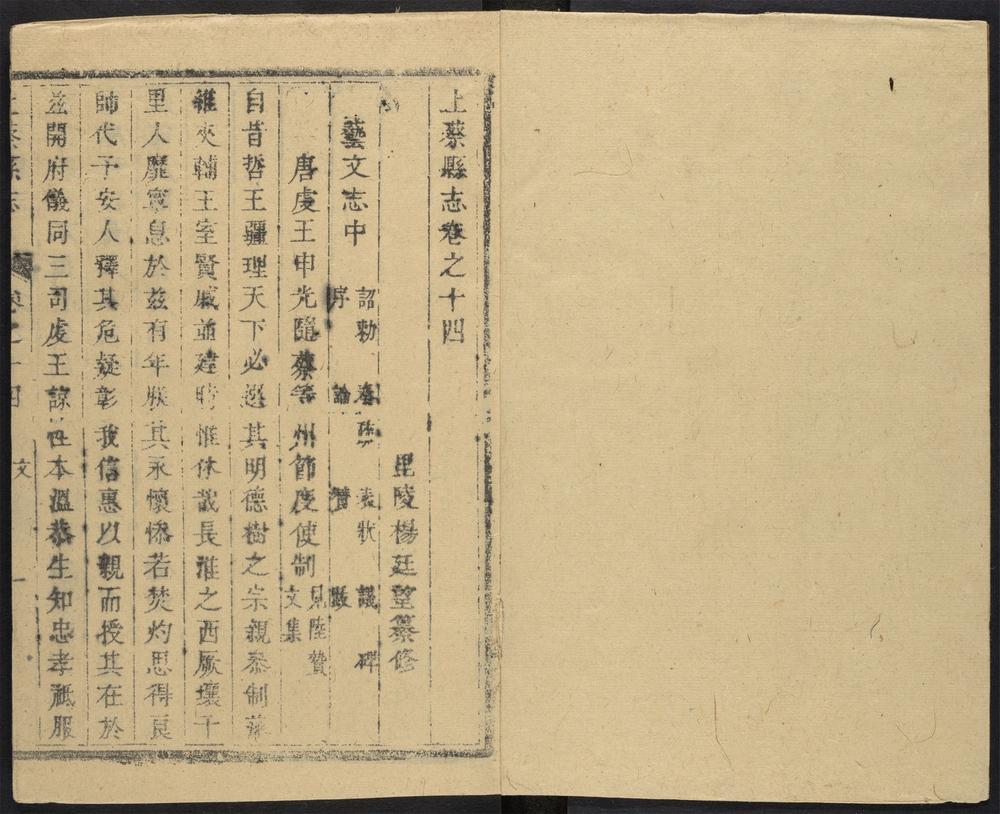 上蔡縣志卷之十四
毘陵楊廷望纂修
藝文志中
詔勅 表狀 議 碑
序 論 贊 跋
唐虔王申光隨蔡等州節度使制 見陸贄文集
自昔哲王疆理天下必選其明德樹之宗親泰制
維夾輔王室賢戚並建時惟休哉長淮之西厥壤千
里人靡寧息於茲有年朕其永懷惨若焚灼思得良
帥代予安人釋其危疑彰我信惠以親而授其在於
兹開府儀同三司虔王諒性本溫恭生知忠孝祗服
上蔡縣志 卷之十四 文 一